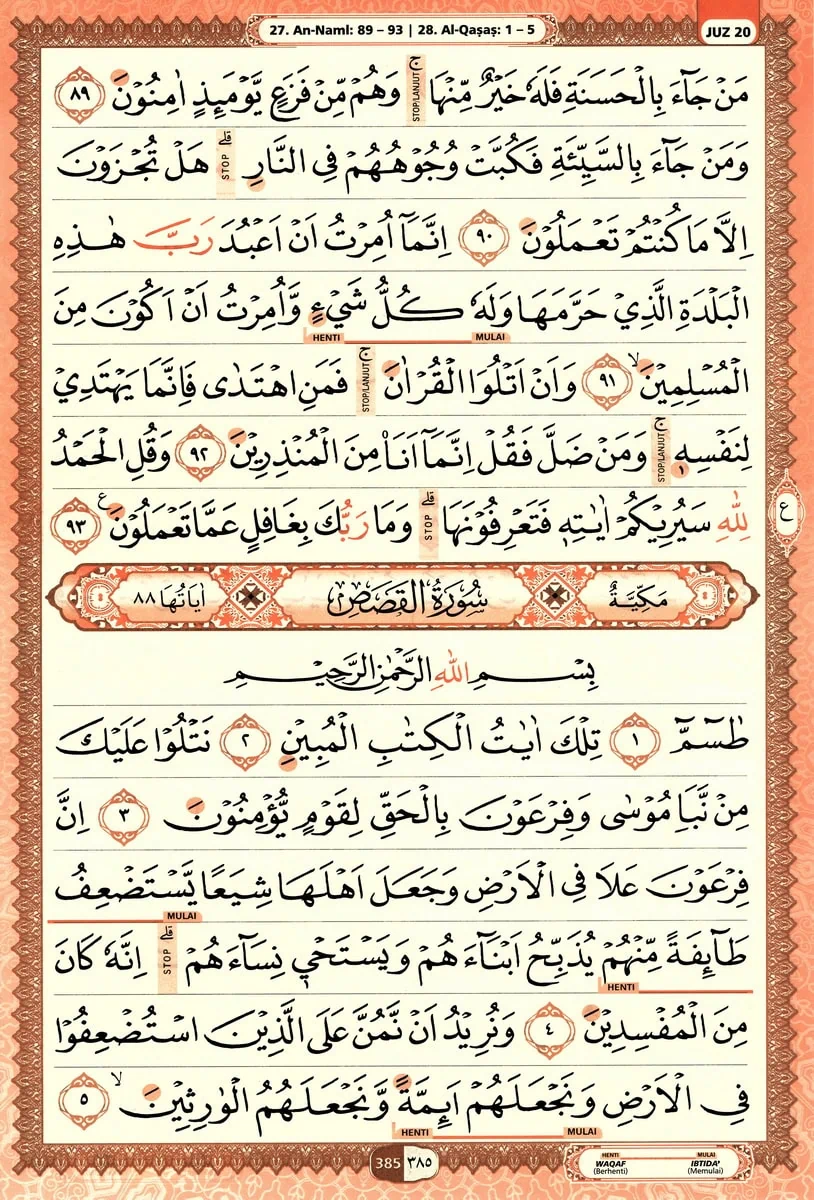 27. An-Naml: 89 – 93 | 28. Al-Qaṣaṣ: 1 – 5
JUZ 20
مَنْ جَاۤءَ بِالْحَسَنَةِ فَلَهٗ خَيْرٌ مِّنْهَا ۚ STOP/LANJUT وَهُمْ مِّنْ فَزَعٍ يَّوْمَىِٕذٍ اٰمِنُوْنَ ٨٩
وَمَنْ جَاۤءَ بِالسَّيِّئَةِ فَكُبَّتْ وُجُوْهُهُمْ فِى النَّارِ ۗ STOP هَلْ تُجْزَوْنَ
اِلَّا مَا كُنْتُمْ تَعْمَلُوْنَ ٩٠ اِنَّمَآ اُمِرْتُ اَنْ اَعْبُدَ رَبَّ هٰذِهِ
الْبَلْدَةِ الَّذِيْ حَرَّمَهَا وَلَهٗ كُلُّ شَيْءٍ وَّاُمِرْتُ اَنْ اَكُوْنَ مِنَ
HENTI MULAI
الْمُسْلِمِيْنَ ۙ ٩١ وَاَنْ اَتْلُوَا الْقُرْاٰنَ ۚ STOP/LANJUT فَمَنِ اهْتَدٰى فَاِنَّمَا يَهْتَدِيْ
لِنَفْسِهٖ ۚ STOP/LANJUT وَمَنْ ضَلَّ فَقُلْ اِنَّمَآ اَنَا۠ مِنَ الْمُنْذِرِيْنَ ٩٢ وَقُلِ الْحَمْدُ
لِلّٰهِ سَيُرِيْكُمْ اٰيٰتِهٖ فَتَعْرِفُوْنَهَا ۗ STOP وَمَا رَبُّكَ بِغَافِلٍ عَمَّا تَعْمَلُوْنَ ࣖ ٩٣
ع
مَكِّيَّةٌ سُوْرَةُ الْقَصَصِ اٰيَاتُهَا ٨٨
بِسْمِ اللّٰهِ الرَّحْمٰنِ الرَّحِيْمِ
طٰسۤمّۤ ١ تِلْكَ اٰيٰتُ الْكِتٰبِ الْمُبِيْنِ ٢ نَتْلُوْا عَلَيْكَ
مِنْ نَّبَاِ مُوْسٰى وَفِرْعَوْنَ بِالْحَقِّ لِقَوْمٍ يُّؤْمِنُوْنَ ٣ اِنَّ
فِرْعَوْنَ عَلَا فِى الْاَرْضِ وَجَعَلَ اَهْلَهَا شِيَعًا يَّسْتَضْعِفُ
MULAI
طَاۤىِٕفَةً مِّنْهُمْ يُذَبِّحُ اَبْنَاۤءَهُمْ وَيَسْتَحْيٖ نِسَاۤءَهُمْ ۗ STOP اِنَّهٗ كَانَ
HENTI
مِنَ الْمُفْسِدِيْنَ ٤ وَنُرِيْدُ اَنْ نَّمُنَّ عَلَى الَّذِيْنَ اسْتُضْعِفُوْا
فِى الْاَرْضِ وَنَجْعَلَهُمْ اَىِٕمَّةً وَّنَجْعَلَهُمُ الْوٰرِثِيْنَ ۙ ٥
HENTI MULAI
385 ٣٨٥
HENTI MULAI
WAQAF IBTIDA'
(Berhenti) (Memulai)